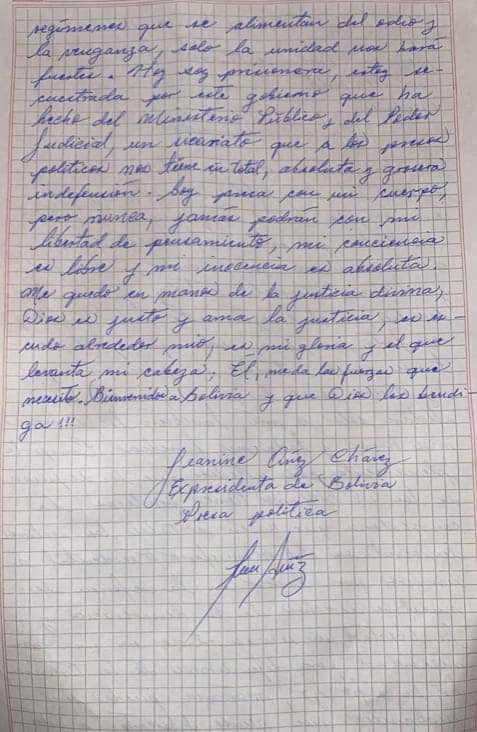 regímenes que se alimentan del odio y
la venganza, solo la unidad nos hará
fuertes. Hoy soy prisionera, estoy se-
cuestrada por este gobierno que ha
hecho del Ministerio Público y del Poder
Judicial, un sicariato que a los presos
políticos nos tiene en total, absoluta y grosera
indefensión. Soy presa con mi cuerpo,
pero nunca, jamás podrán con mi
libertad de pensamiento, mi conciencia
es libre y mi inocencia es absoluta.
Me quedo en manos de la justicia divina,
Dios es justo y ama la justicia, es es-
cudo alrededor mío, es mi gloria y el que
levanta mi cabeza. Él, me da las fuerzas que
necesito. Bienvenidos a Bolivia y que Dios los bendi-
ga!!!
Jeanine Añez Chávez
Expresidenta de Bolivia
Presa política